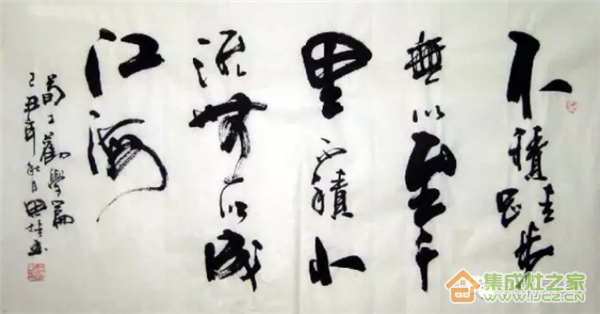 不積跬步
無以至千
里不積小
流無以成
江海
荀子勸學篇
己丑年秋月
集成灶之家